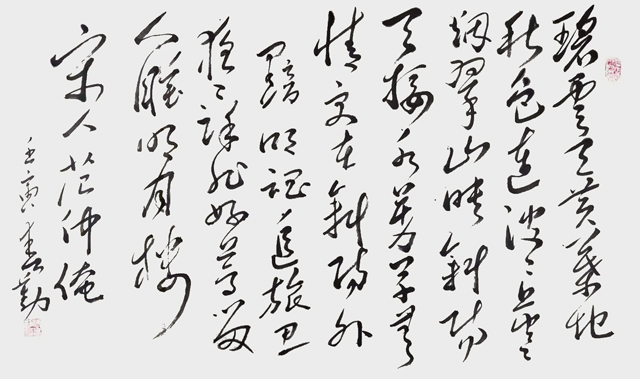 碧雲天黄葉地
秋色連波波上寒
烟翠山映斜陽
天接水芳草無
情更在斜陽外
黯鄉魂追旅思
夜夜除非好夢留
人睡明月樓
宋人范仲淹
壬寅 勤